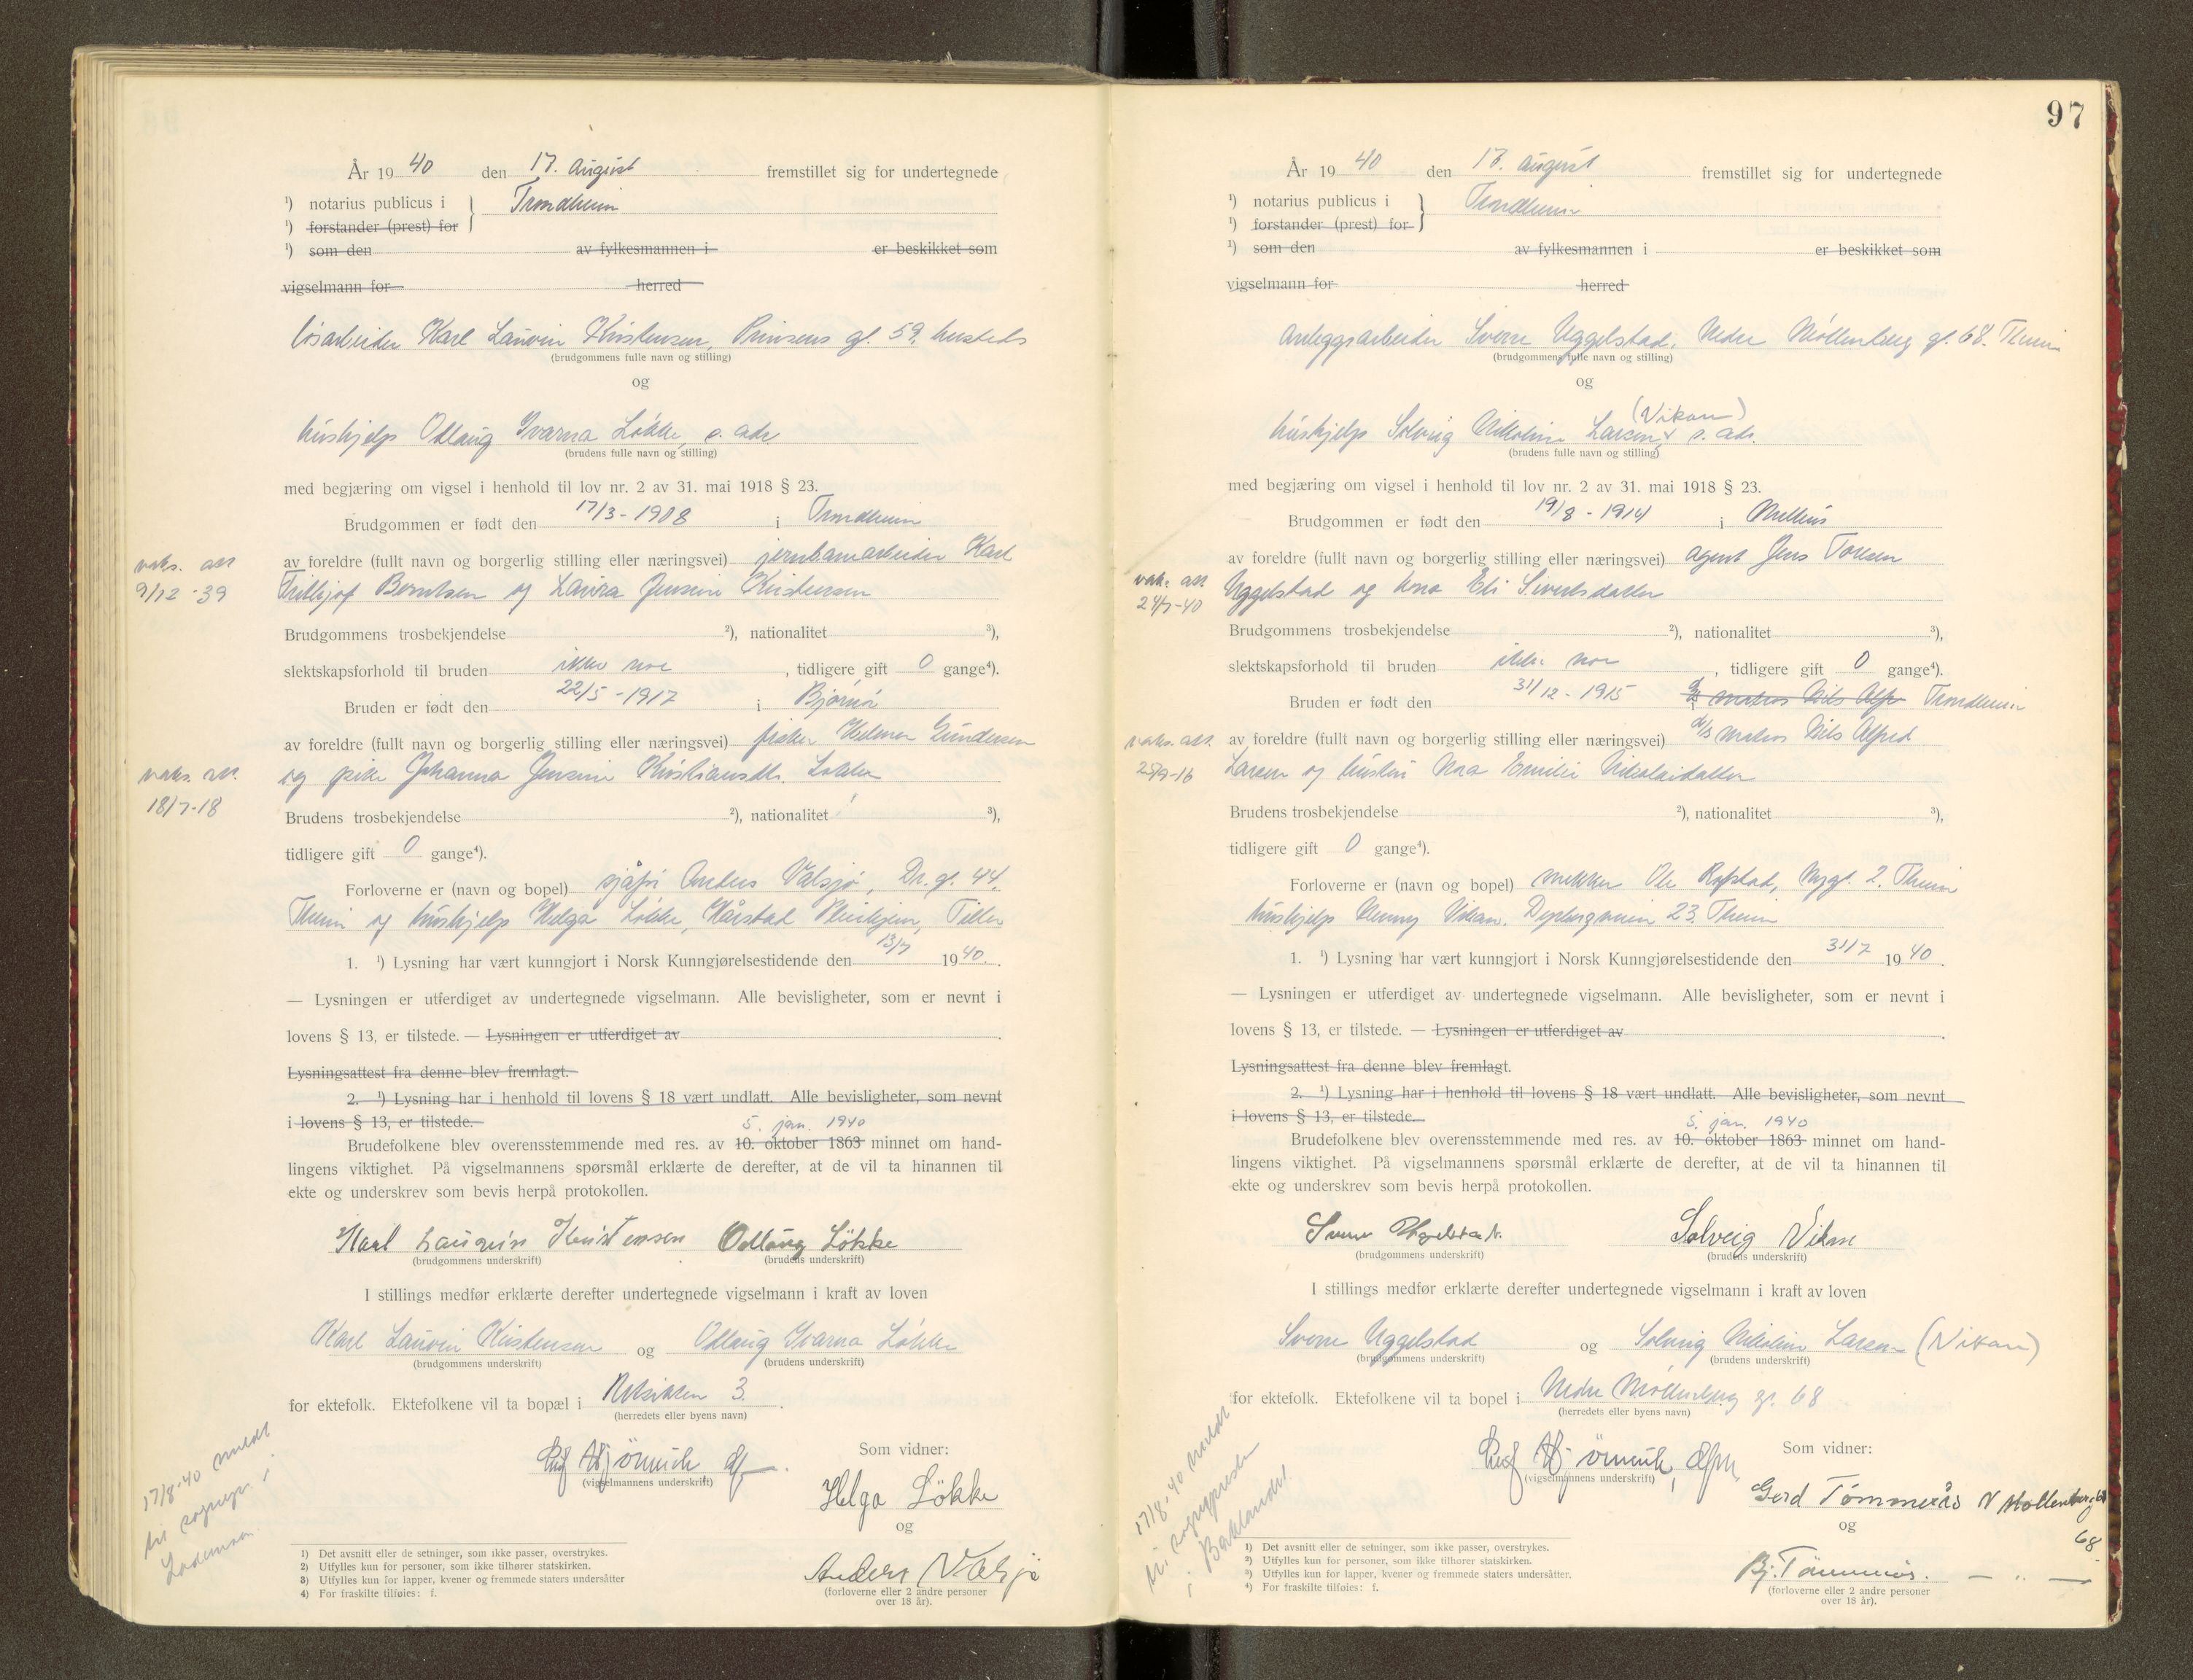 År 19 40 den 17. August fremstillet sig for undertegnede
¹) notarius publicus i } Trondheim
¹) forstander (prest) for
¹) som den av fylkesmannen i er beskikket som
vigselmann for herred
løsarbeider Karl Lauvin Kristensen, Prinsens gt. 59, husteds
(brudgommens fulle navn og stilling)
og
hushjelp Odlaug Ivarna Løkke, s. adr.
(brudens fulle navn og stilling)
med begjæring om vigsel i henhold til lov nr. 2 av 31. mai 1918 § 23.
Brudgommen er født den 17/3 - 1908 i Trondheim
vaks. att. 9/12 - 39
av foreldre (fullt navn og borgerlig stilling eller næringsvei) jernbanearbeider Karl
Fridtjof Berntsen og Laura Jensine Kristensen
Brudgommens trosbekjendelse ²), nationalitet ³),
slektskapsforhold til bruden ikke noe, tidligere gift 0 gange⁴).
Bruden er født den 22/5 - 1917 i Bjørnør
av foreldre (fullt navn og borgerlig stilling eller næringsvei) fisker Helmer Gundersen
vaks. att. 18/7-18
og pike Johanna Jensine Kristiansdtr. Løkke
Brudens trosbekjendelse ²), nationalitet ³),
tidligere gift 0 gange⁴).
Forloverne er (navn og bopel) sjåfør Anders Valsjø, Dr. gt. 44,
Theim og hushjelp Helga Løkke, Hårstad Pleiehjem, Tiller
1. ¹) Lysning har vært kunngjort i Norsk Kunngjørelsestidende den 13/7 1940.
— Lysningen er utferdiget av undertegnede vigselmann. Alle bevisligheter, som er nevnt i
lovens § 13, er tilstede. — Lysningen er utferdiget av .
Lysningsattest fra denne blev fremlagt.
2. ¹) Lysning har i henhold til lovens § 18 vært undlatt. Alle bevisligheter, som nevnt
i lovens § 13, er tilstede.
5. jan. 1940
Brudefolkene blev overensstemmende med res. av 10. oktober 1863 minnet om hand-
lingens viktighet. På vigselmannens spørsmål erklærte de derefter, at de vil ta hinannen til
ekte og underskrev som bevis herpå protokollen.
Karl Lauvin Kristensen Odlaug Løkke
(brudgommens underskrift) (brudens underskrift)
I stillings medfør erklærte derefter undertegnede vigselmann i kraft av loven
Karl Lauvin Kristensen og Odlaug Ivarna Løkke
(brudgommens underskrift) (brudens underskrift)
for ektefolk. Ektefolkene vil ta bopæl i 3.
(herredets eller byens navn)
Som vidner:
(vigselmannens underskrift)
Helga Løkke
og
Anders Valsjø
(forloverne eller 2 andre personer
over 18 år).
17/8-40 meldt
til sognepr. i
Lademoen
1) Det avsnitt eller de setninger, som ikke passer, overstrykes.
2) Utfylles kun for personer, som ikke tilhører statskirken.
3) Utfylles kun for lapper, kvener og fremmede staters undersåtter
4) For fraskilte tilføies: f.
97
År 19 40 den 17. august fremstillet sig for undertegnede
¹) notarius publicus i } Trondheim
¹) forstander (prest) for
¹) som den av fylkesmannen i er beskikket som
vigselmann for herred
anleggsarbeider Sverre Uggelstad, Nedre Møllenberg gt. 68. Theim
(brudgommens fulle navn og stilling)
og
(Vikan)
hushjelp Solveig Nikoline Larsen, s. adr.
(brudens fulle navn og stilling)
med begjæring om vigsel i henhold til lov nr. 2 av 31. mai 1918 § 23.
Brudgommen er født den 19/8 - 1914 i Melhus
av foreldre (fullt navn og borgerlig stilling eller næringsvei) agent Jens Toresen
vaks. att. 24/7-40
Uggelstad og kona Eli Sivertsdatter
Brudgommens trosbekjendelse ²), nationalitet ³),
slektskapsforhold til bruden ikke noe, tidligere gift 0 gange⁴).
Bruden er født den 31/12 - 1915 i matros Nils Alfr Trondheim
av foreldre (fullt navn og borgerlig stilling eller næringsvei) matros Nils Alfred
vaks. att. 25/9-16
Larsen og hustru Nora Emilie Nikolaidatter
Brudens trosbekjendelse ²), nationalitet ³),
tidligere gift 0 gange⁴).
Forloverne er (navn og bopel) Ole Rofstad, Nygt. 2. Theim
hushjelp Henny Vikan. Dyrborgveien 23. Theim
1. ¹) Lysning har vært kunngjort i Norsk Kunngjørelsestidende den 31/7 1940.
— Lysningen er utferdiget av undertegnede vigselmann. Alle bevisligheter, som er nevnt i
lovens § 13, er tilstede. — Lysningen er utferdiget av .
Lysningsattest fra denne blev fremlagt.
2. ¹) Lysning har i henhold til lovens § 18 vært undlatt. Alle bevisligheter, som nevnt
i lovens § 13, er tilstede.
5. jan. 1940
Brudefolkene blev overensstemmende med res. av 10. oktober 1863 minnet om hand-
lingens viktighet. På vigselmannens spørsmål erklærte de derefter, at de vil ta hinannen til
ekte og underskrev som bevis herpå protokollen.
Sverre Uggelstad. Solveig Vikan
(brudgommens underskrift) (brudens underskrift)
I stillings medfør erklærte derefter undertegnede vigselmann i kraft av loven
Sverre Uggelstad og Solveig Nikoline Larsen (Vikan)
(brudgommens underskrift) (brudens underskrift)
for ektefolk. Ektefolkene vil ta bopel i Nedre Møllenberg gt. 68
(herredets eller byens navn)
Som vidner:
(vigselmannens underskrift)
Gerd Tømmerås N Møllenberg
68
og
Bj. Tømmerås. — " —
(forloverne eller 2 andre personer
over 18 år).
17/8-40 meldt
til sognepresten
i Baklandet
¹) Det avsnitt eller de setninger, som ikke passer, overstrykes.
²) Utfylles kun for personer, som ikke tilhører statskirken.
³) Utfylles kun for lapper, kvener og fremmede staters undersåtter.
⁴) For fraskilte tilføies: f.